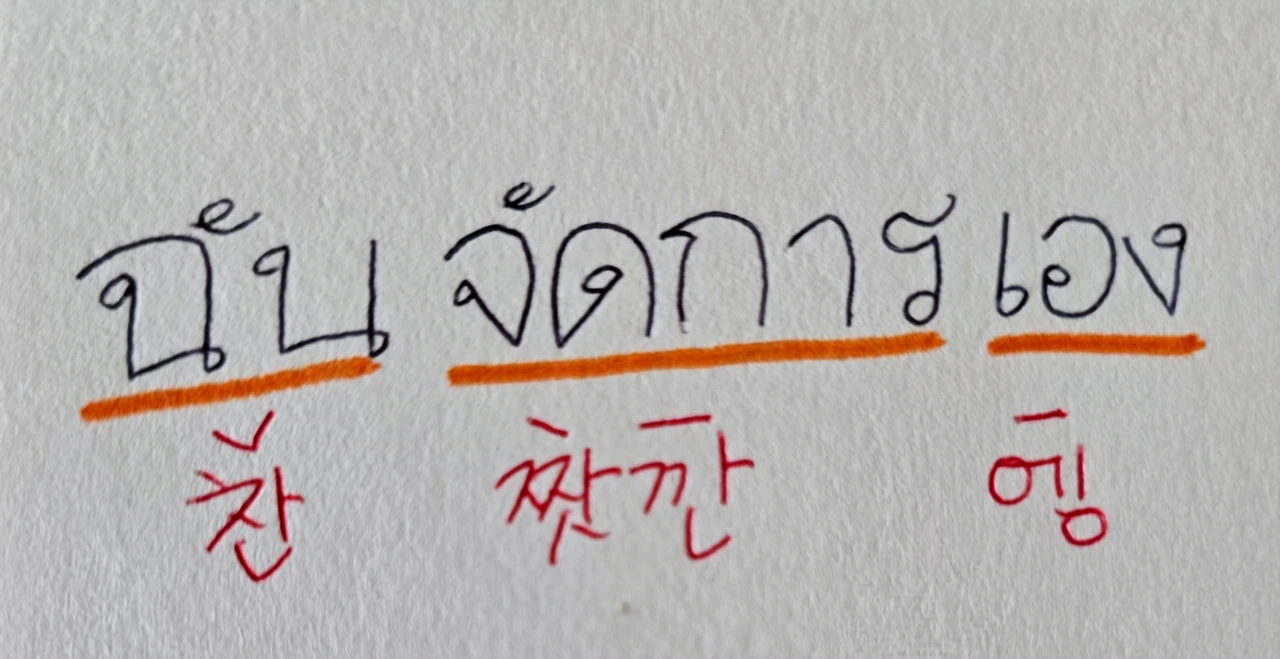 ฉัน จัดการ เอง
찬 짯깐 엥